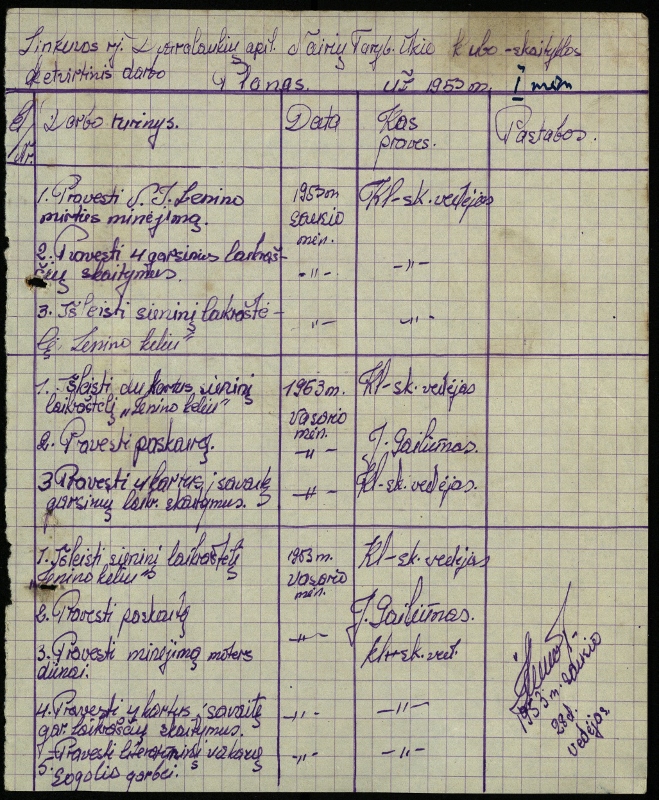 Linkuvos rj. Dvarelaukių apil. Vairių Taryb. Ūkio klubo-skaityklos
Ketvirtinis darbo Planas. už 1953 m. I mėn
El/Nr. Darbo turinys. Data Kas praves. Pastabos.
1. Pravesti V. I. Lenino 1953 m Kl-sk. vedėjas
mirties minėjimą. sausio
mėn.
2. Pravesti 4 garsinius laikraš-
čių skaitymus. -"- -"-
3. Išleisti sieninį laikraštė- -"- -"-
lį „Lenino keliu"
1. Išleisti du kartus sieninį 1953 m. Kl-sk. vedėjas
laikraštėlį „Lenino keliu" Vasario
mėn.
2. Pravesti paskaitą. -"- J. Gailiūnas.
3 Pravesti 4 kartus į savaitę -"- Kl-sk. vedėjas.
garsinių laikr. skaitymus.
1. Išleisti sieninį laikraštėlį 1953 m. Kl-sk. vedėjas
„Lenino keliu" Vasario
mėn.
2. Pravesti paskaitą J. Gailiūnas.
-"-
3. Pravesti minėjimą moters kl-sk. ved.
dienai.
4. Pravesti 4 kartus į savaitę -"- -"-
gar. laikraščių skaitymus.
5. Pravesti literatūrinį vakarą -"- -"-
Gogolio garbei.
1953 m. sausio
28 d.
vedėjas